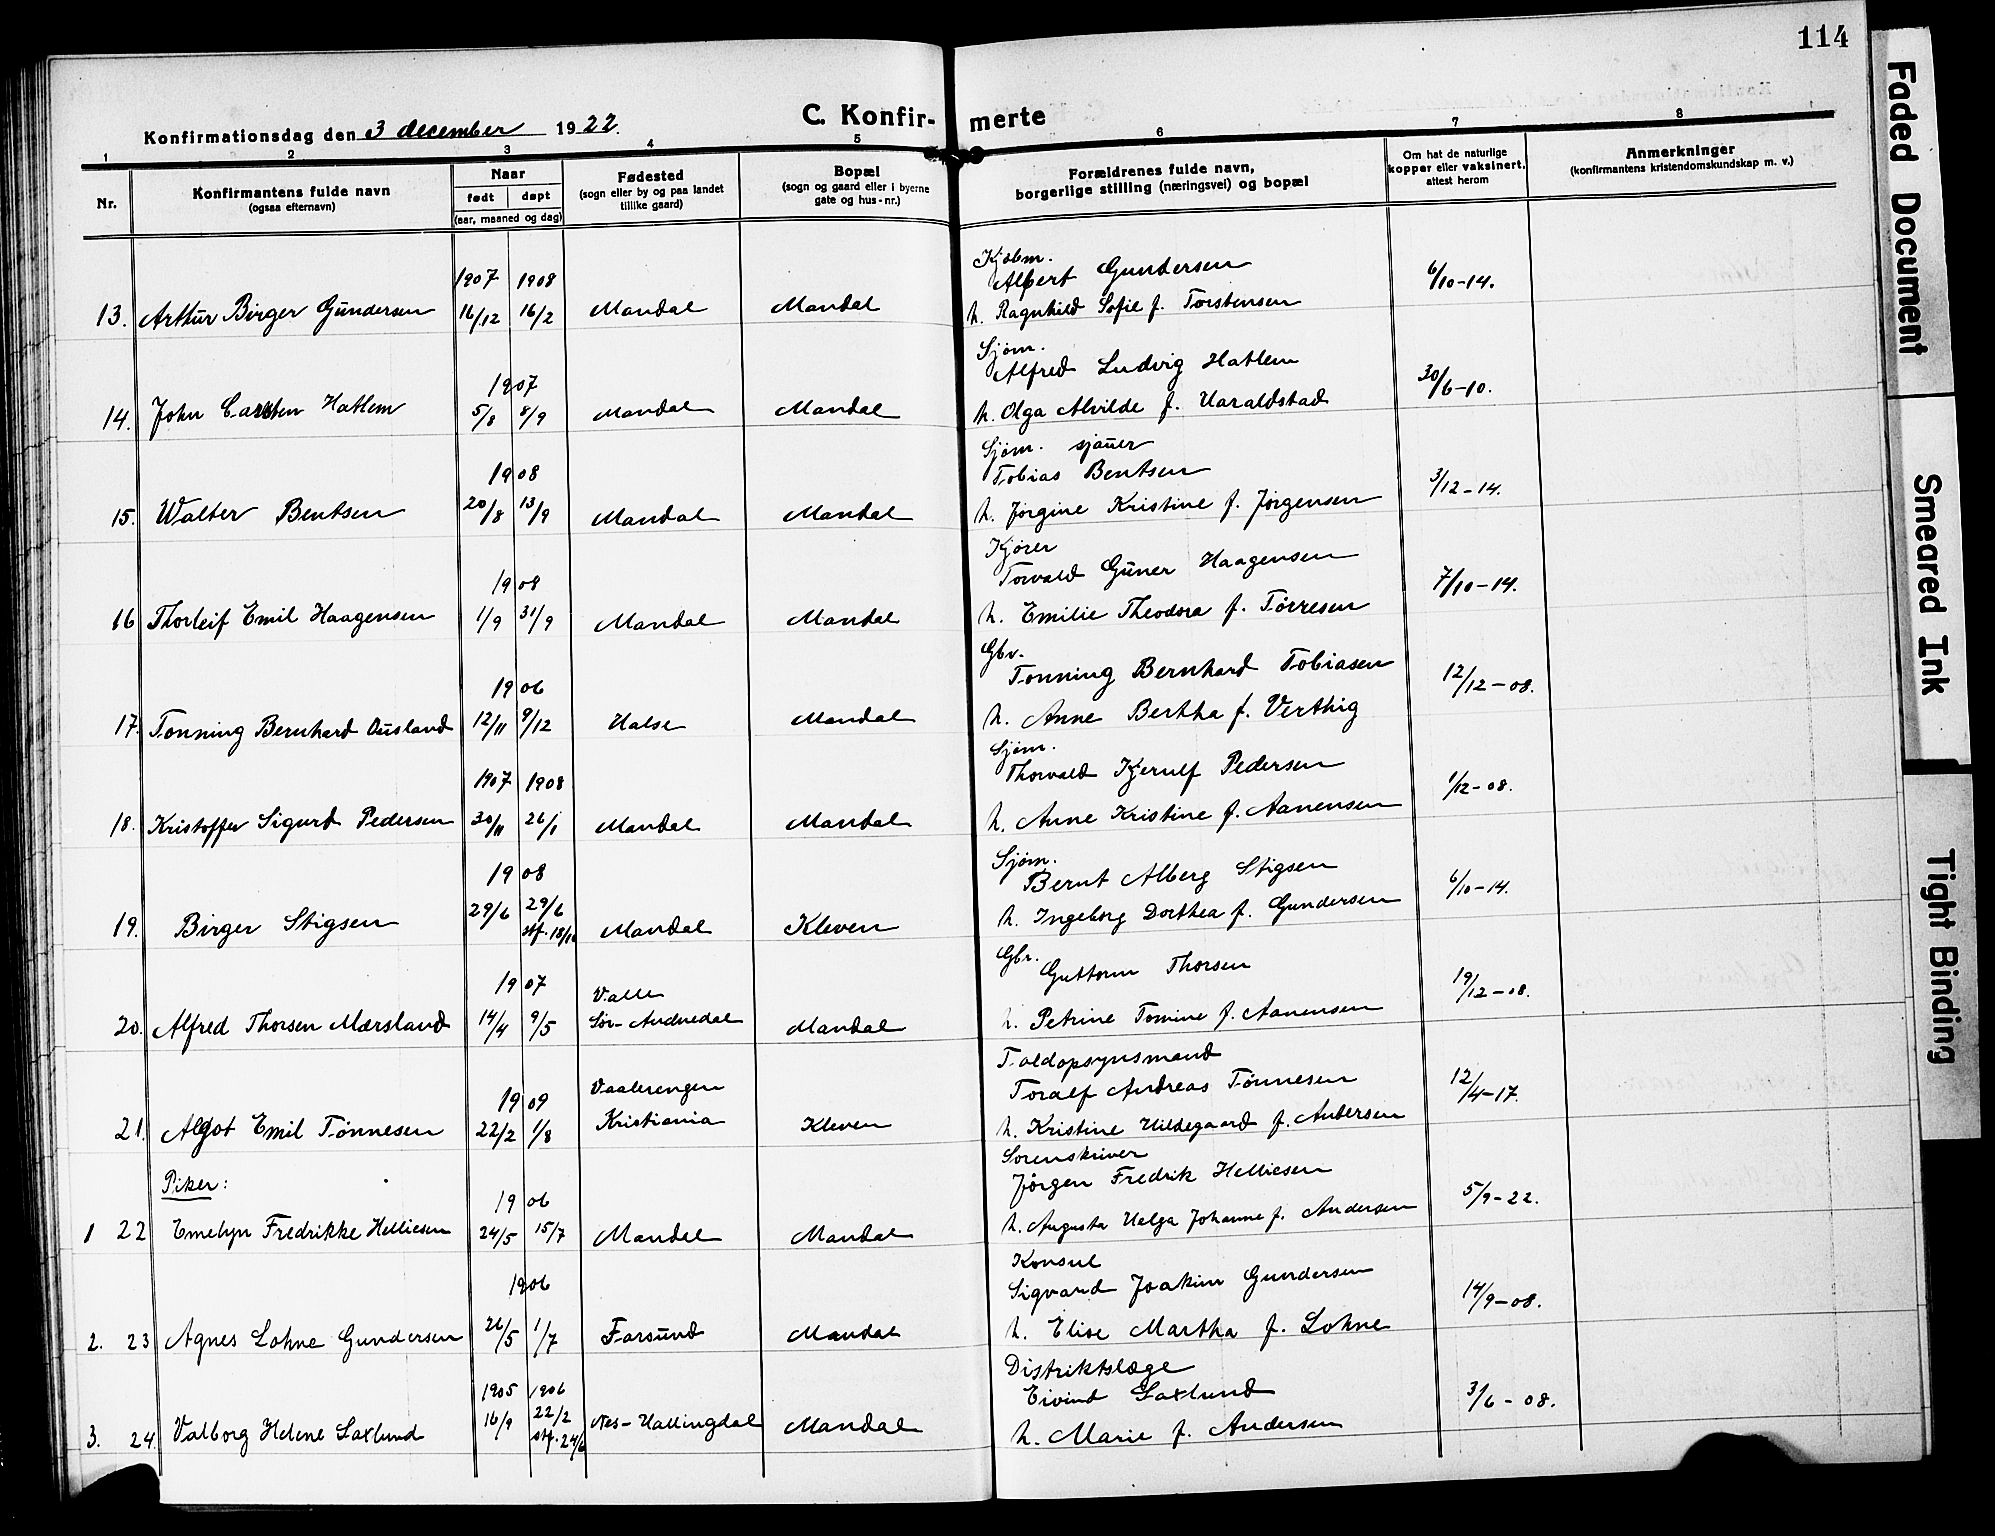 114
C. Konfirmerte
Konfirmationsdag den 3 december 1922.
1 2 3 4 5 6 7 8
Nr.
Konfirmantens fulde navn
(ogsaa efternavn)
Naar
født døpt
(aar, maaned og dag)
Fødested
(sogn eller by og paa landet
tillike gaard)
Bopæl
(sogn og gaard eller i byerne
gate og hus-nr.)
Forældrenes fulde navn,
borgerlige stilling (næringsvei) og bopæl
Om hat de naturlige
kopper eller vaksinert.
attest herom
Anmerkninger
(konfirmantens kristendomskundskap m. v.)
1907 1908 Kjøbm.
Albert Gundersen 6/10-14.
13. Arthur Birger Gundersen 16/12 16/2 Mandal Mandal h. Ragnhild Sofie f. Torstensen
Sjøm.
1907 Alfred Ludvig Hatlem 30/6-10.
14. John Carsten Hatlem 5/8 8/9 Mandal Mandal h. Olga Alvilde f. Haraldstad
Sjøm. sjauer
1908 Tobias Bentsen 3/12-14.
15. Walter Bentsen 20/8 13/9 Mandal Mandal h. Jørgine Kristine f. Jørgensen
Kjører
1908 Torvald Guner Haagensen 7/10-14.
16 Thorleif Emil Haagensen 1/9 31/9 Mandal Mandal h. Emilie Theodora f. Tørresen
Gbr.
1906 Tønning Bernhard Tobiasen 12/12-08.
17. Tønning Bernhard Ausland 12/11 9/12 Halse Mandal h. Anne Bertha f. Verthig
Sjøm.
1907 1908 Thorvald Kjerulf Pedersen 1/12-08.
18. Kristoffer Sigurd Pedersen 30/11 26/1 Mandal Mandal h. Anne Kristine f. Aanensen
Sjøm.
1908 Bernt Alberg Stigsen 6/10-14.
19. Birger Stigsen 29/6 29/6 Mandal Kleven h. Ingeborg Dorthea f. Gundersen
stf. 18/10
Gbr.
1907 Valle Guttorm Thorsen 19/12-08.
20. Alfred Thorsen Mærsland 14/4 9/5 Sør-Audnedal Mandal h. Petrine Tomine f. Aanensen
Toldopsynsmand
1909 Vaalerengen Toralf Andreas Tønnesen 12/4-17.
21. Algot Emil Tønnesen 22/2 1/8 Kristiania Kleven h. Kristine Hildegaard f. Andersen
Piker:
Sorenskriver
1906 Jørgen Fredrik Helliesen 5/9-22.
1 22 Emelyn Fredrikke Helliesen 24/5 15/7 Mandal Mandal h. Augusta Helga Johanne f. Andersen
Konsul
1906 Sigvard Joakim Gundersen 14/9-08.
2. 23 Agnes Lohne Gundersen 26/5 1/7 Farsund Mandal h. Elise Martha f. Lohne
Distriktslæge
1905 1906 Eivind Saxlund 3/6-08.
3. 24. Valborg Helene Saxlund 16/9 22/2 Nes-Hallingdal Mandal h. Marie f. Andersen
stf. 24/6
Faded Document
Smeared Ink
Tight Binding